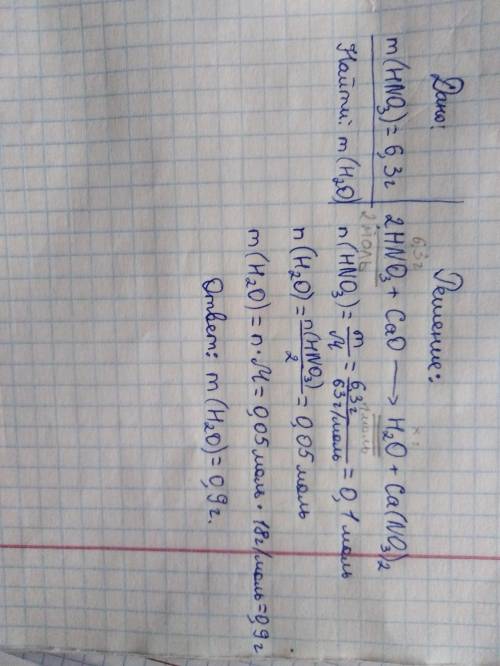 Дано:
m(HNO₃) = 6,3г
Найти: m(H₂O)
Решение:
6,3г x г
2HNO₃ + CaO → H₂O + Ca(NO₃)₂
2 моль 1 моль
n(HNO₃) = m/M = 6,3г/63г/моль = 0,1 моль
n(H₂O) = n(HNO₃)/2 = 0,05 моль
m(H₂O) = n · M = 0,05 моль · 18г/моль = 0,9 г
Ответ: m(H₂O) = 0,9 г.